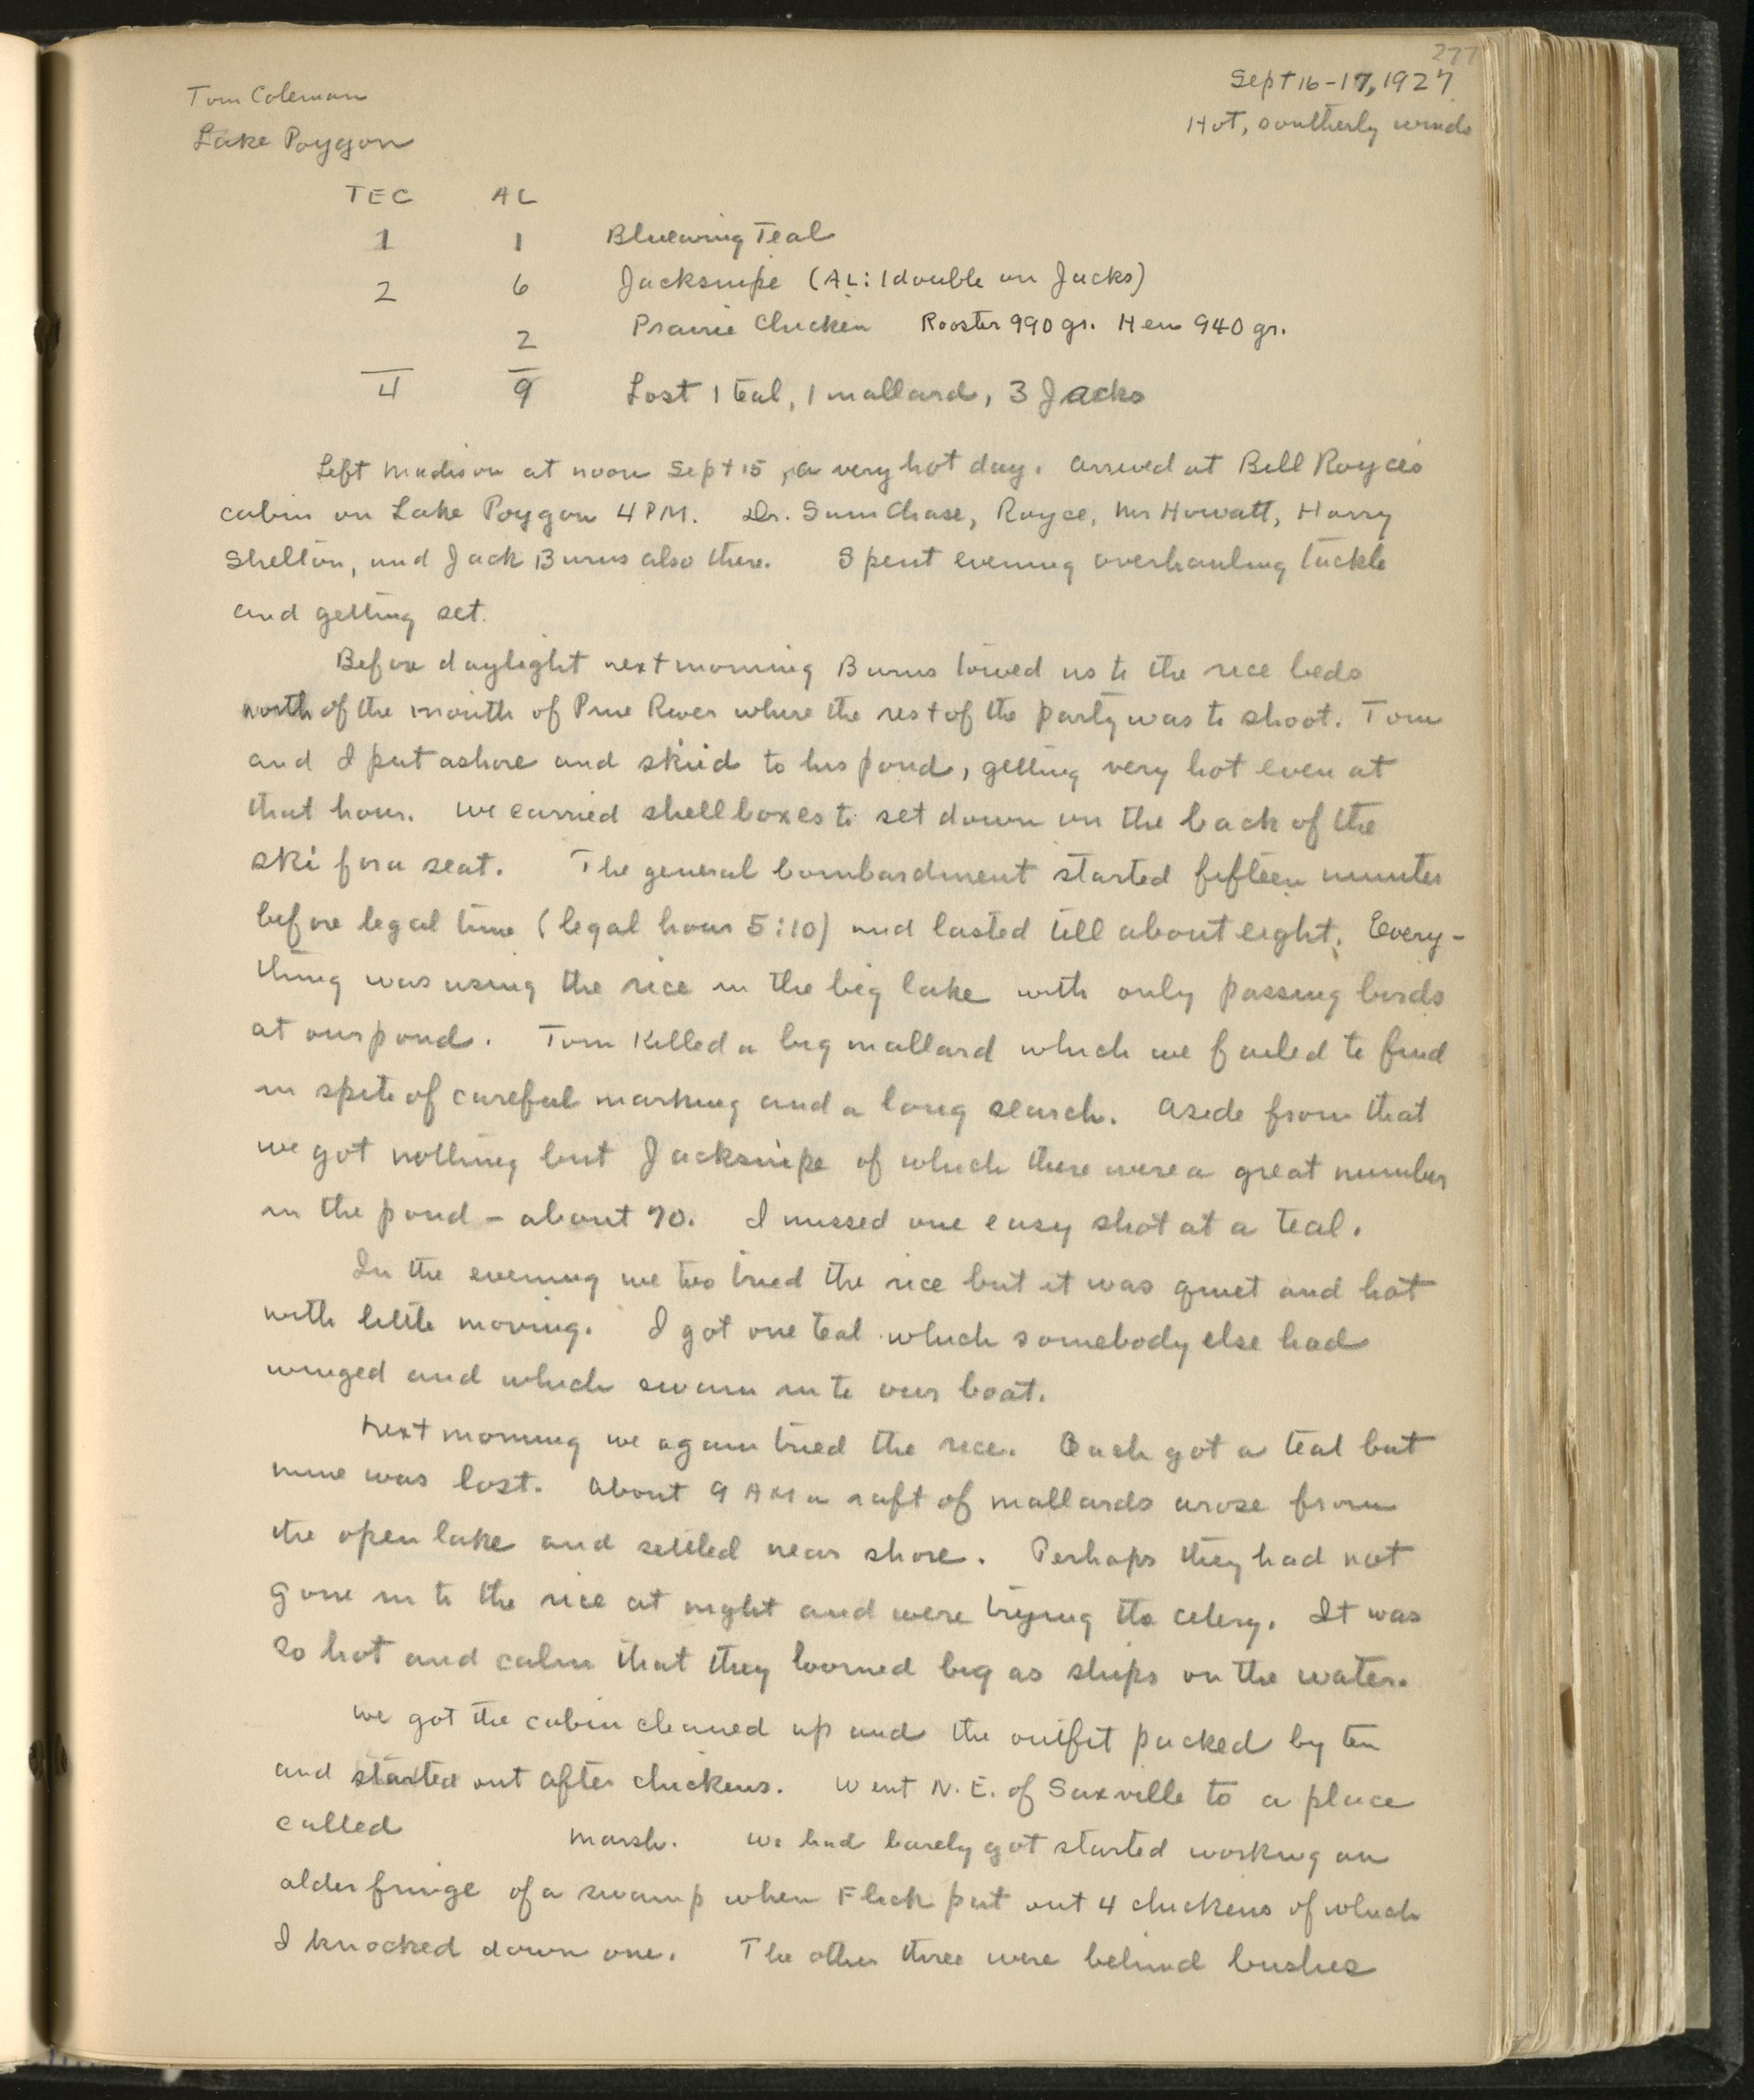 277
Tom Coleman
Sept 16-17, 1927
Lake Poygon
Hot, southerly winds
TEC AL
1 1 Bluewing Teal
2 6 Jacksnipe (AL: 1 double on Jacks)
2 Prairie Chicken Rooster 990 gr. Hen 940 gr.
4 9 Lost 1 teal, 1 mallard, 3 Jacks
Left Madison at noon Sept 15, a very hot day. Arrived at Bill Royce's
cabin on Lake Poygon 4 PM. Dr. Sam Chase, Royce, Howatt, Harry
Shelton, and Jack Burns also there. Spent evening overhauling tackle
and getting set.
Before daylight next morning Burns towed us to the rice beds
north of the mouth of Pine River where the rest of the party was to shoot. Tom
and I put ashore and skiid to his pond, getting very hot even at
that hour. We carried shell boxes to set down on the back of the
ski for a seat. The general bombardment started fifteen minutes
before legal time (legal hour 5:10) and lasted till about eight. Every-
thing was using the rice in the big lake with only passing birds
at our pond. Tom killed a big mallard which we failed to find
in spite of careful marking and a long search. Aside from that
we got nothing but Jacksnipe of which there were a great number
in the pond - about 70. I missed one easy shot at a teal.
In the evening we two tried the rice but it was quiet and hot
with little moving. I got one teal which somebody else had
winged and which swam into our boat.
Next morning we again tried the rice. Each got a teal but
mine was lost. About 9 AM a raft of mallards arose from
the open lake and settled near shore. Perhaps they had not
gone in to the rice at night and were trying the celery. It was
so hot and calm that they loomed big as ships on the water.
We got the cabin cleaned up and the outfit packed by ten
and started out after chickens. Went N.E. of Saxville to a place
called marsh. We had barely got started working an
alder fringe of a swamp when Flick put out 4 chickens of which
I knocked down one. The other three were behind bushes